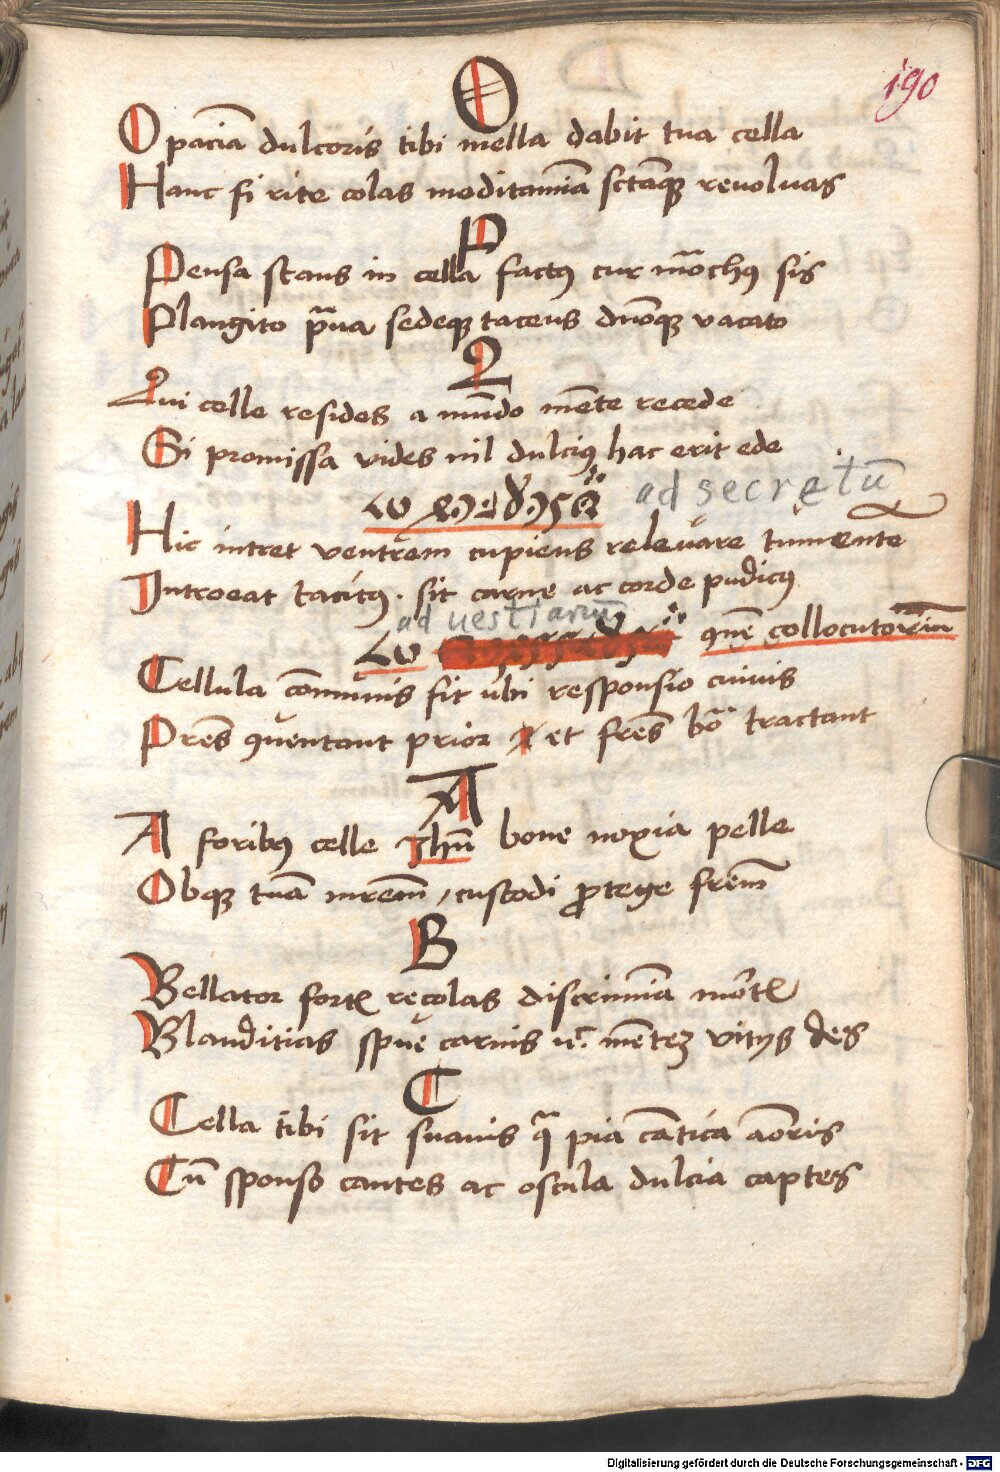 190
O
O pacīa dulcoris tibi mella dabit tua cella
Hanc si rite colas meditamīa sctāqꝫ reuoluas
P
Pensa stans in cella factꝰ cur mōchꝰ sis
Plangito p̄ua sedeqꝫ tacens dn̄oqꝫ vacato
Q
Qui celle resides a mūdo mēte recede
Si promissa vides nil dulciꝰ hac erit ede
ad secretū
Hic intret ventrem cupiens releuare tumentē
Introeat tacitꝰ . sit carne ac corde pudicꝰ
ad uestiariū
ꝯuē collocutoriū
Cellula cōmunis sit vbi responsio cuiuis
Pr̄es ꝯuentant prior et fr̄es bō tractant
A
A foribꝰ celle Ihū bone noxia pelle
Obqꝫ tuā mr̄em / custodi protege fr̄em
B
Bellator fortꝭ recolas discrimīa mortꝭ
Blanditias spue carnis mētēꝫ vitijs des
C
Cella tibi sit suauis q̄ pia cātica amōris
Cū sponso cantes ac oscula dulcia captes
Digitalisierung gefördert durch die Deutsche Forschungsgemeinschaft - DFG